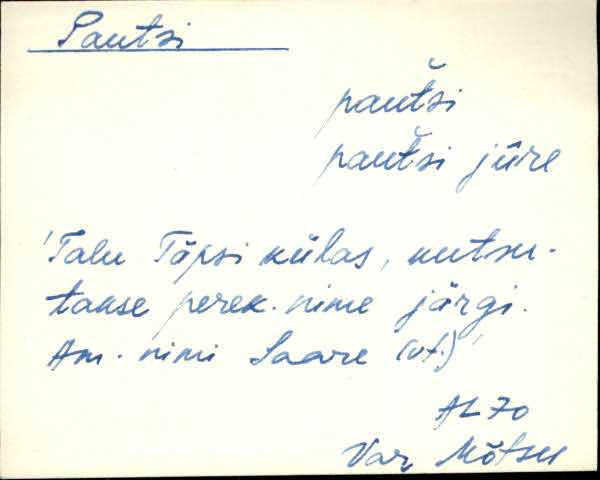 Pautsi
pautši
pautši jüre
'Talu Tõpsi külas, kutsu-
takse perek. nime järgi.
Am. nimi Saare (vt.)'
AL 70
Var, Mõtsu